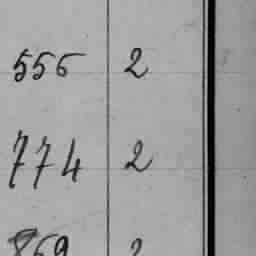 556 2
774 2
869 2